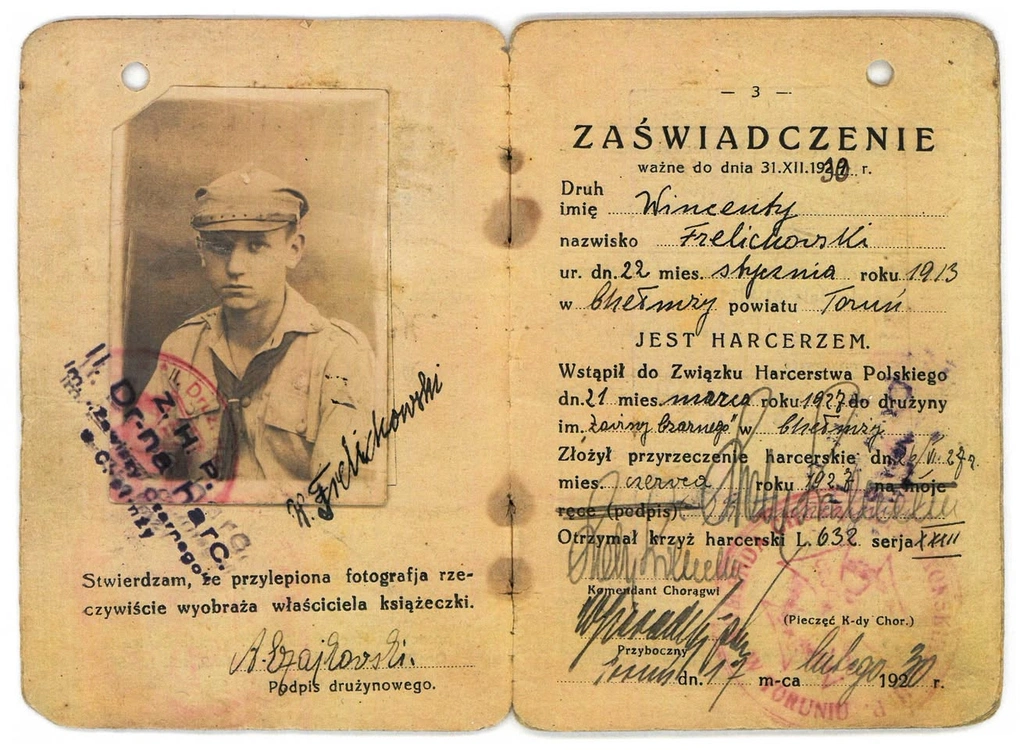 II. Dr-na Harc.
Z. H. P.
im. Zawiszy Czarnego
w Chełmży
W. Frelichowski
Stwierdzam, że przylepiona fotografja rze-
czywiście wyobraża właściciela książeczki.
A. Czajkowski.
Podpis drużynowego.
— 3 —
ZAŚWIADCZENIE
ważne do dnia 31.XII.1930 r.
Druh
imię Wincenty
nazwisko Frelichowski
ur. dn. 22 mies. stycznia roku 1913
w Chełmży powiatu Toruń
JEST HARCERZEM.
Wstąpił do Związku Harcerstwa Polskiego
dn. 21 mies. marca roku 1927 do drużyny
im. Zawiszy Czarnego" w Chełmży
Złożył przyrzeczenie harcerskie dn. 26/VI. 27 r.
mies. czerwca roku 1927 na moje
ręce (podpis)
Otrzymał krzyż harcerski L. 632 serja XXIII
Komendant Chorągwi
(Pieczęć K-dy Chor.)
Przyboczny
Toruń dn. 17 m-ca lutego 1930 r.
TORUNIU